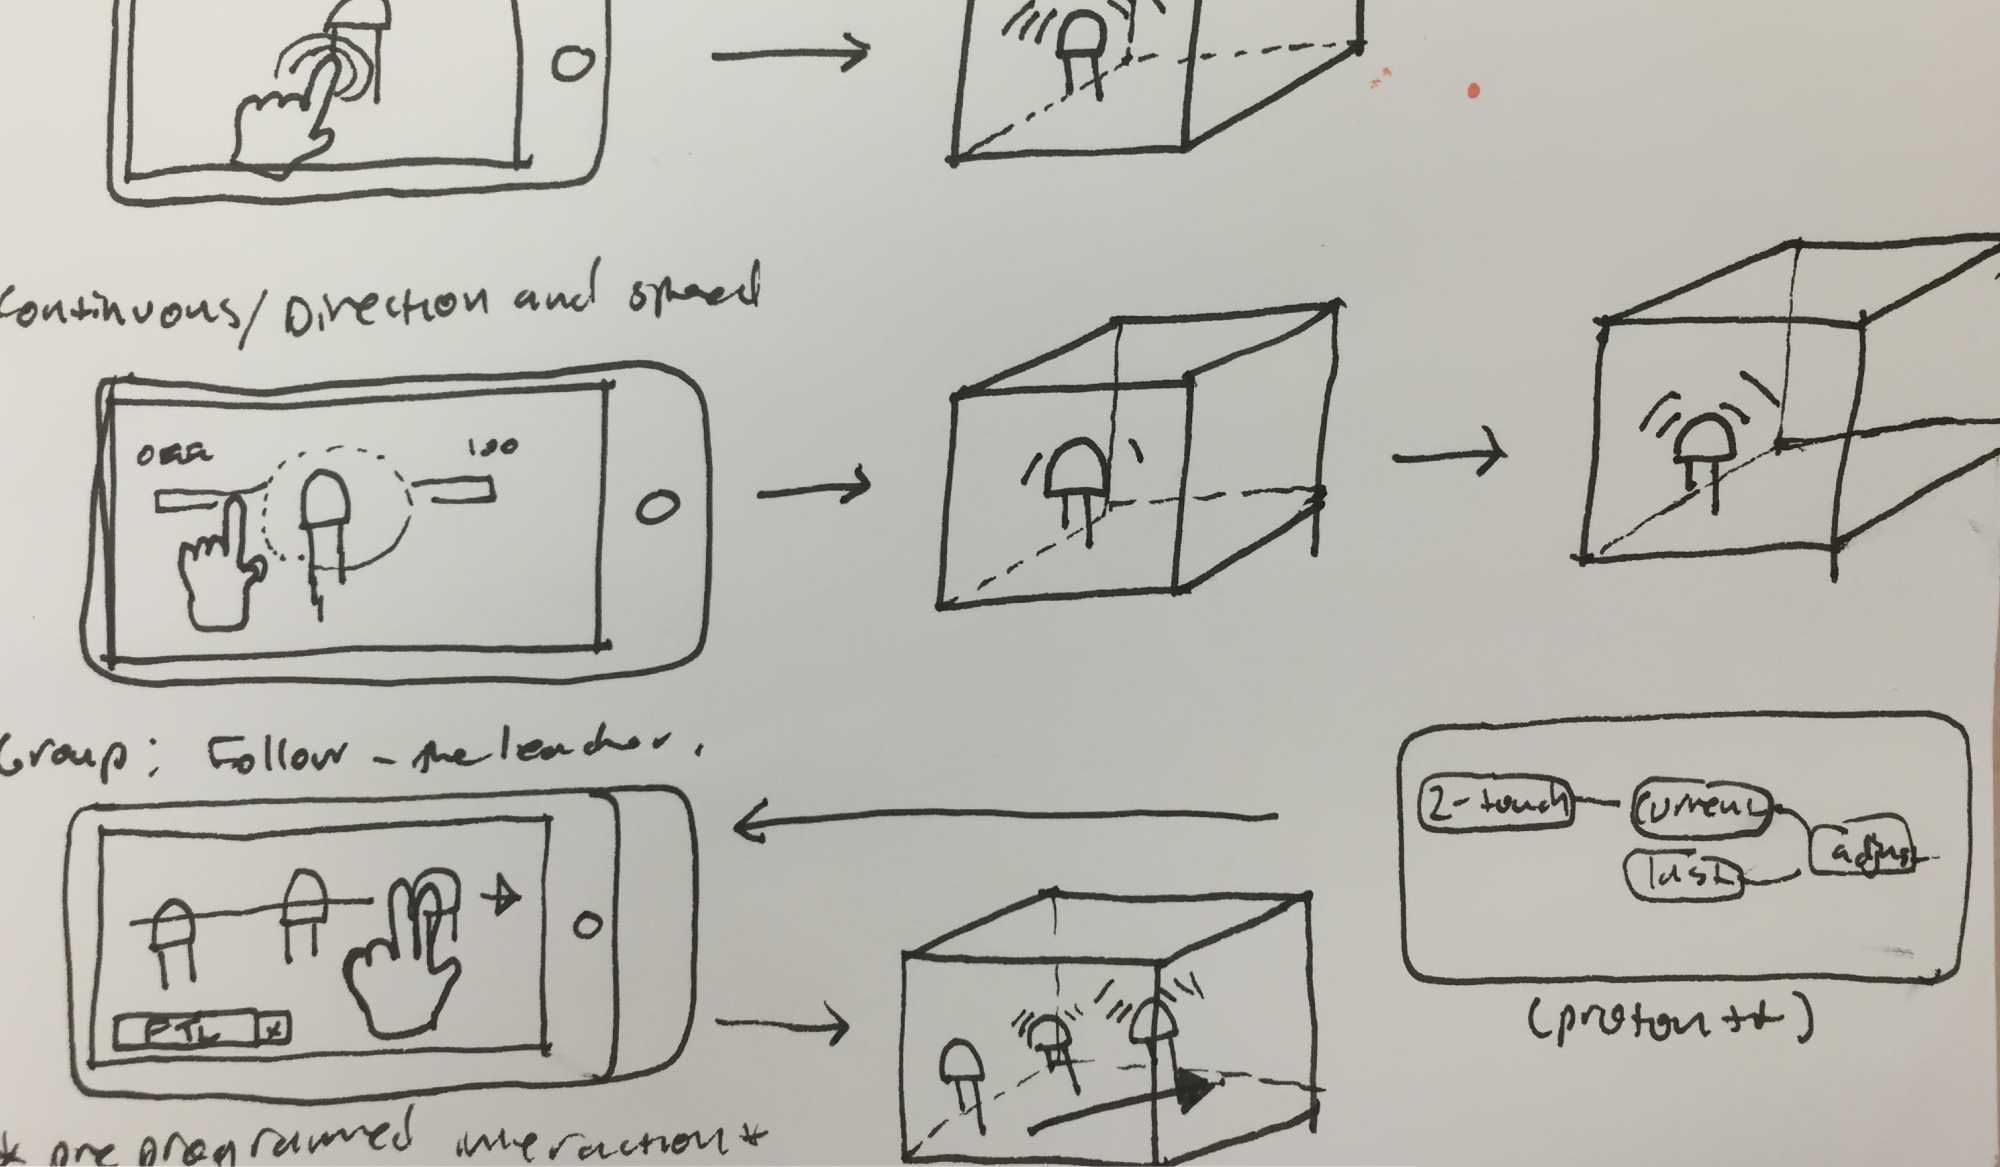 Continuous/Direction and speed
100
Group: Follow-the leader.
2-touch
current
last
adjust
FTL x
(proton++)
* preprogrammed interaction *